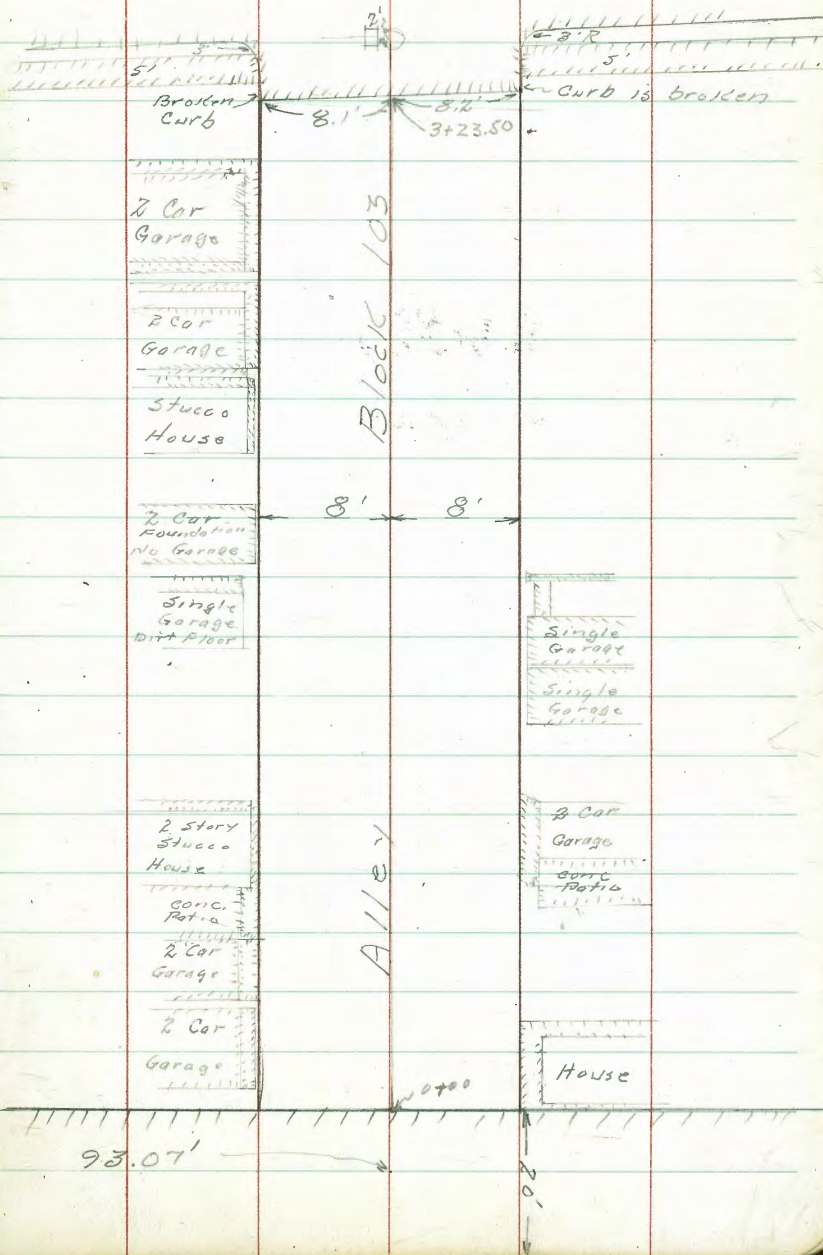 2'
3'
3'R
5'
5'
Broken
Curb
8.1'
8.2'
3+23.50
Curb is broken
2 Car
Garage
2 Car
Garage
Stucco
House
Block 103
8'
8'
2 Car
Foundation
No Garage
Single
Garage
Dirt Floor
Single
Garage
Single
Garage
2 Story
Stucco
House
conc.
Patio
2 Car
Garage
2 Car
Garage
Alley
2 Car
Garage
conc
Patio
House
0+00
93.07'
20'